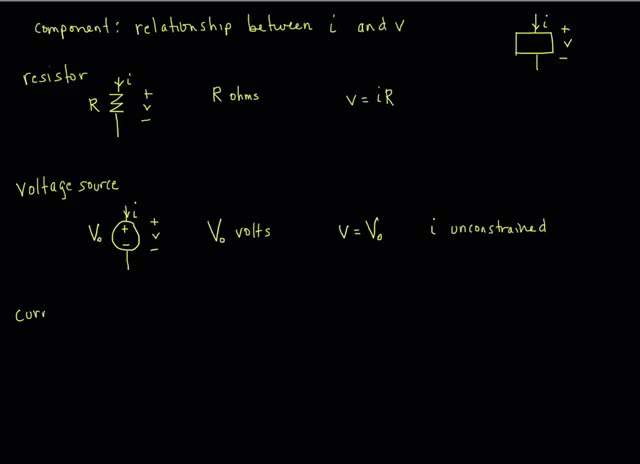 component: relationship between i and v
i
+
v
−
resistor
i
R
+
v
−
R ohms
v = iR
voltage source
i
V₀
+
−
+
v
−
V₀ volts
v = V₀
i unconstrained
curr